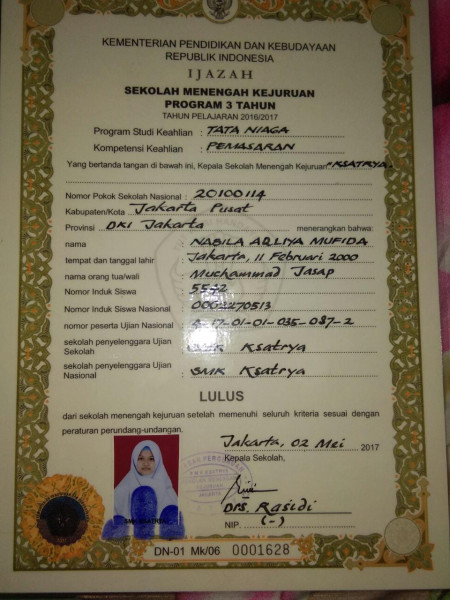 KEMENTERIAN PENDIDIKAN DAN KEBUDAYAAN
REPUBLIK INDONESIA
IJAZAH
SEKOLAH MENENGAH KEJURUAN
PROGRAM 3 TAHUN
TAHUN PELAJARAN 2016/2017
Program Studi Keahlian : TATA NIAGA
Kompetensi Keahlian : PEMASARAN
Yang bertanda tangan di bawah ini, Kepala Sekolah Menengah Kejuruan "KSATRYA.
Nomor Pokok Sekolah Nasional : 20100114
Kabupaten/Kota : Jakarta Pusat
Provinsi : DKI Jakarta menerangkan bahwa:
nama : NABILA ADLIYA MUFIDA
tempat dan tanggal lahir : Jakarta, 11 Februari 2000
nama orang tua/wali : Muchammad Jasap
Nomor Induk Siswa :
Nomor Induk Siswa Nasional :
nomor peserta Ujian Nasional : 4-17-01-01-035-087-2
sekolah penyelenggara Ujian Sekolah : SMK Ksatrya
sekolah penyelenggara Ujian Nasional : SMK Ksatrya
LULUS
dari sekolah menengah kejuruan setelah memenuhi seluruh kriteria sesuai dengan
peraturan perundang-undangan.
Jakarta, 02 Mei 2017
Kepala Sekolah,
Drs. Rasidi
NIP. (-)
DN-01 Mk/06 0001628